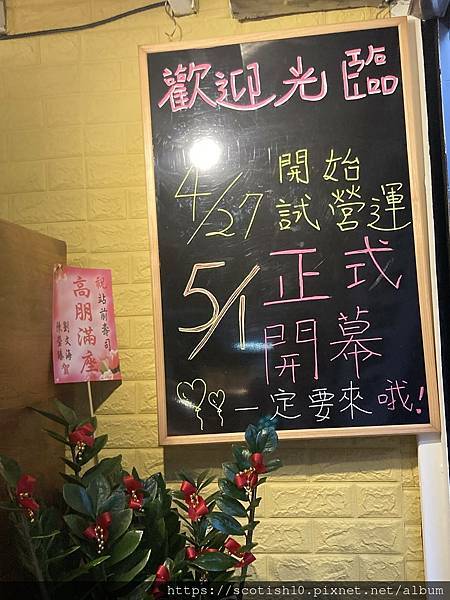 歡迎光臨
4/27 開始
試營運
5/1 正式
開幕
一定要來哦!
祝 站前壽司
高朋滿座
劉文海 賀
https://scotish10.pixnet.net/album